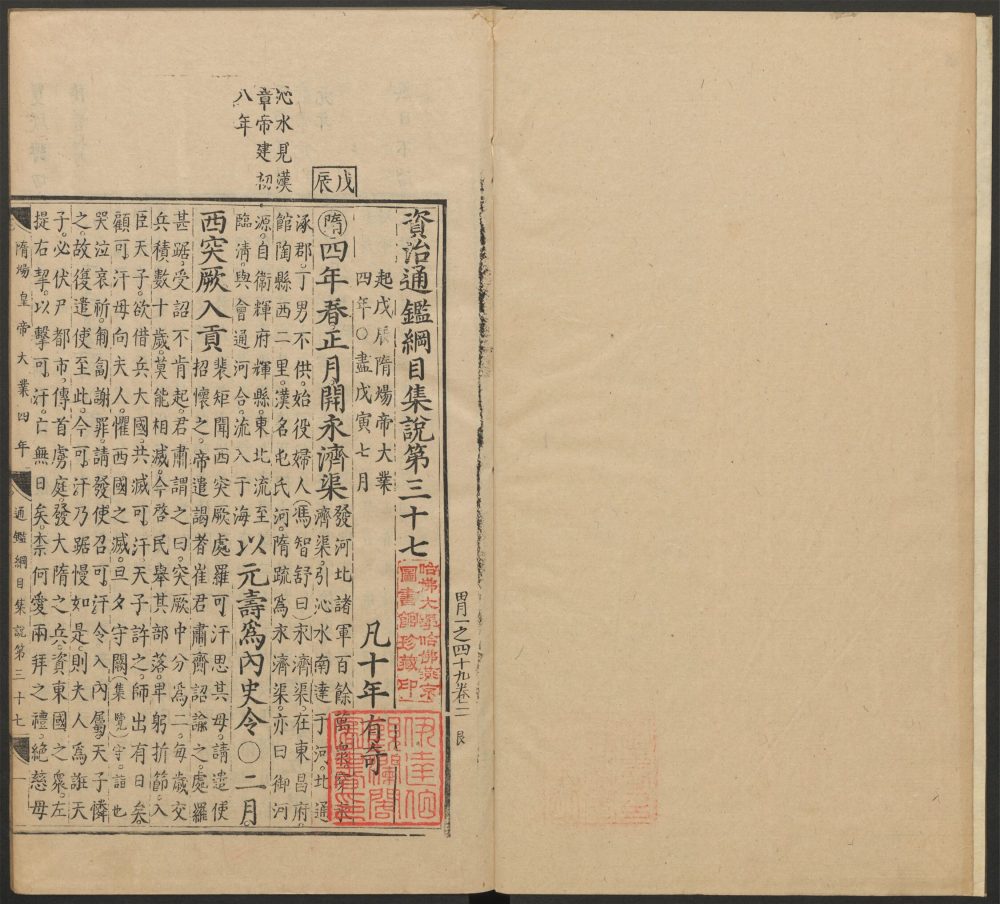 沁水見漢
章帝建初
八年
戊辰
資治通鑑綱目集說第三十七
哈佛大學哈佛燕京
圖書館珍藏印
起戊辰隋煬帝大業
四年○盡戊寅七月
凡十年有奇
伊達伯
觀瀾閣
圖書印
隋四年春正月開永濟渠
發河北諸軍百餘萬衆穿永
濟渠引沁水南達于河北通
涿郡丁男不供始役婦人馮智舒曰永濟渠在東昌府
館陶縣西二里漢名屯氏河隋疏爲永濟渠亦曰御河
源自衛輝府輝縣東北流至
臨清與會通河合流入于海
以元壽爲內史令○二月
西突厥入貢
裴矩聞西突厥處羅可汗思其母請遣使
招懷之帝遣謁者崔君肅齎詔諭之處羅
甚踞受詔不肯起君肅謂之曰突厥中分爲二每歲交
兵積數十歲莫能相滅今啓民舉其部落卑躬折節入
臣天子欲借兵大國共滅可汗天子許之師出有日矣
顧可汗母向夫人懼西國之滅旦夕守闕集覽守詣也
哭泣哀祈匍匐謝罪請發使召可汗令入內屬天子憐
之故復遣使至此今可汗乃踞慢如是則夫人爲誑天
子必伏尸都市傳首虜庭發大隋之兵資東國之衆左
提右挈以擊可汗亡無日矣柰何愛兩拜之禮絶慈母
隋煬皇帝大業四年
通鑑綱目集說第三十七
一